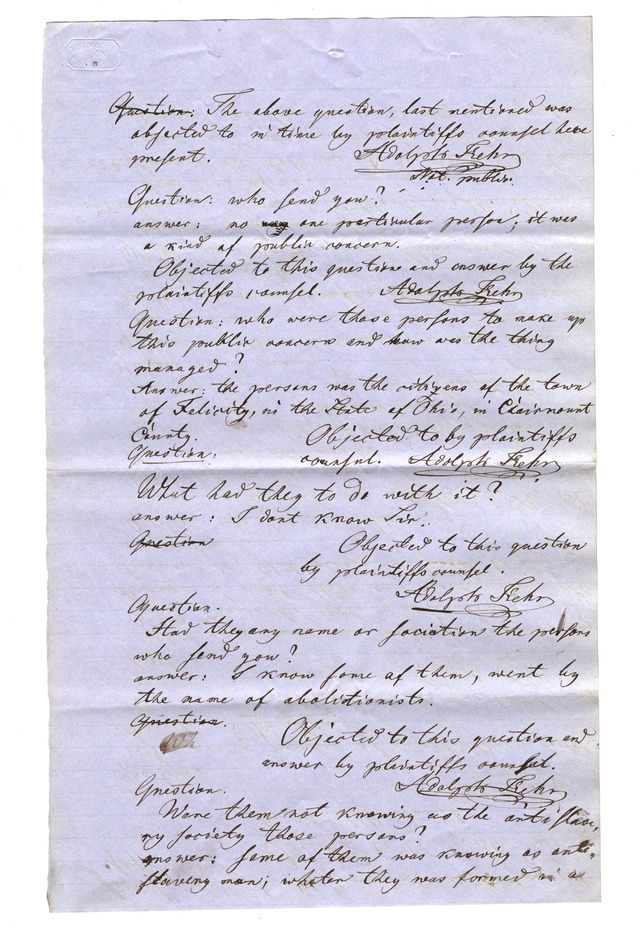 Question: The above question, last mentioned was
objected to in time by plaintiffs counsel here
present. Adolph Kehr
Not. public.
Question: who send you?
answer: no one particular person; it was
a kind of public concern.
Objected to this question and answer by the
plaintiffs counsel. Adolph Kehr
Question: who were those persons to make up
this public concern and how was the thing
managed?
Answer: the persons was the citizens of the town
of Felicity, in the State of Ohio, in Clairmount
County. Objected to by plaintiffs
Question: counsel. Adolph Kehr
What had they to do with it?
answer: I dont know Sir.
Question Objected to this question
by plaintiffs counsel.
Adolph Kehr
Question.
Had they any name or sociation the persons
who send you?
answer: I know some of them, went by
the name of abolitionists.
Question.
Objected to this question and
answer by plaintiffs counsel.
Question. Adolph Kehr
Were them not knowing as the anti slave,
ry society those persons?
answer: some of them was knowing as anti-
slavery man; whater they was formed in a